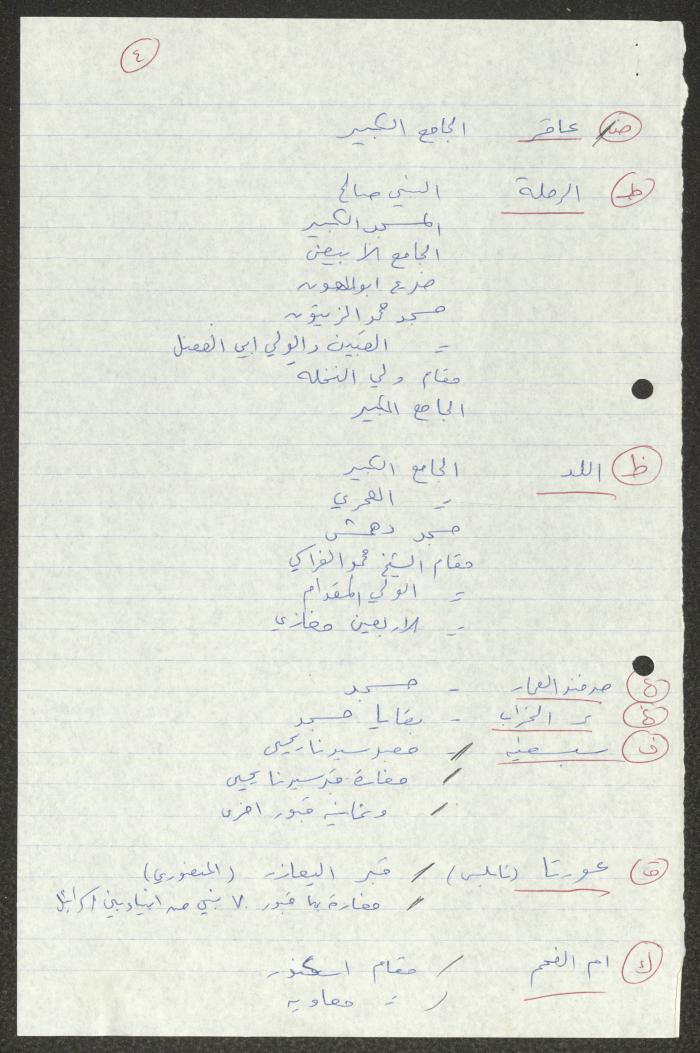 ٤
ض عاقر الجامع الكبير
ط الرملة النبي صالح
المسجد الكبير
الجامع الابيض
ضريح ابوالهون
مسجد محمد الزيتون
〃 القبتين والولي ابي الفضل
مقام ولي النخله
الجامع الكبير
ظ اللد الجامع الكبير
〃 العمري
مسجد دهمش
مقام الشيخ محمد الغراكي
〃 الولي المقدام
〃 الاربعين مغازي
ع صرفند العمار - مسجد
غ 〃 الخراب - بقايا مسجد
ف سبسطيه - معبد سيدنا يحيى
/ مغارة قبر سيدنا يحيى
/ وثمانيه قبور اخرى
ق عورتا (نابلس) / قبر اليعازر (المنصوري)
/ مغارة بها قبور ٧٠ نبي من انبياء بني اسرائيل
ك ام الفحم / مقام اسكندر
/ 〃 معاويه